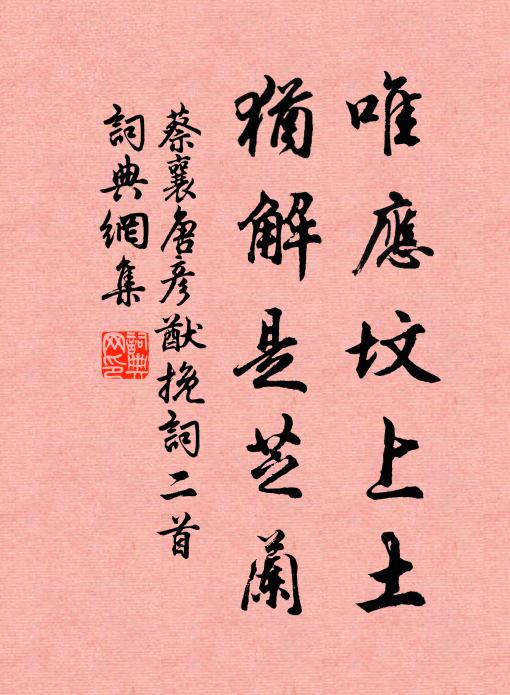 唯應坟上土
猶解是芝蘭
蔡襄唐彦猷挽詞二首
詞典網集
詞典网印